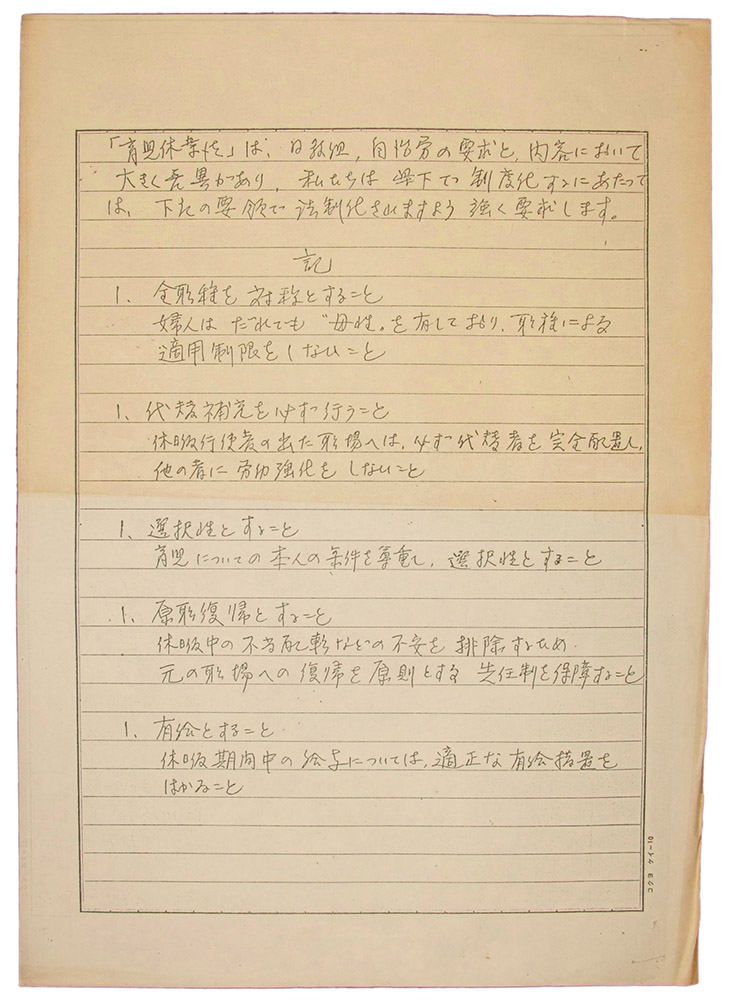 「育児休業法」は、日教組，自治労の要求と，内容において
大きく差異があり， 私たちは 県下で 制度化するにあたって
は、 下記の要領で 法制化されますよう 強く要求します。
記
1、 全職種を 対称とすること
婦人は だれでも “母性„ を有しており、職種による
適用制限をしないこと
1、 代替補充を必ず行うこと
休暇行使者の出た職場へは、必ず代替者を完全配置し、
他の者に労働強化を しないこと
1、 選択性とすること
育児についての本人の条件を尊重し、 選択性とすること
1、 原職復帰とすること
休暇中の不当配転などの不安を排除するため
元の職場への復帰を原則とする 先任制を保障すること
1、 有給とすること
休暇期間中の給与については、適正な有給措置を
はかること
コクヨ ケイ-10